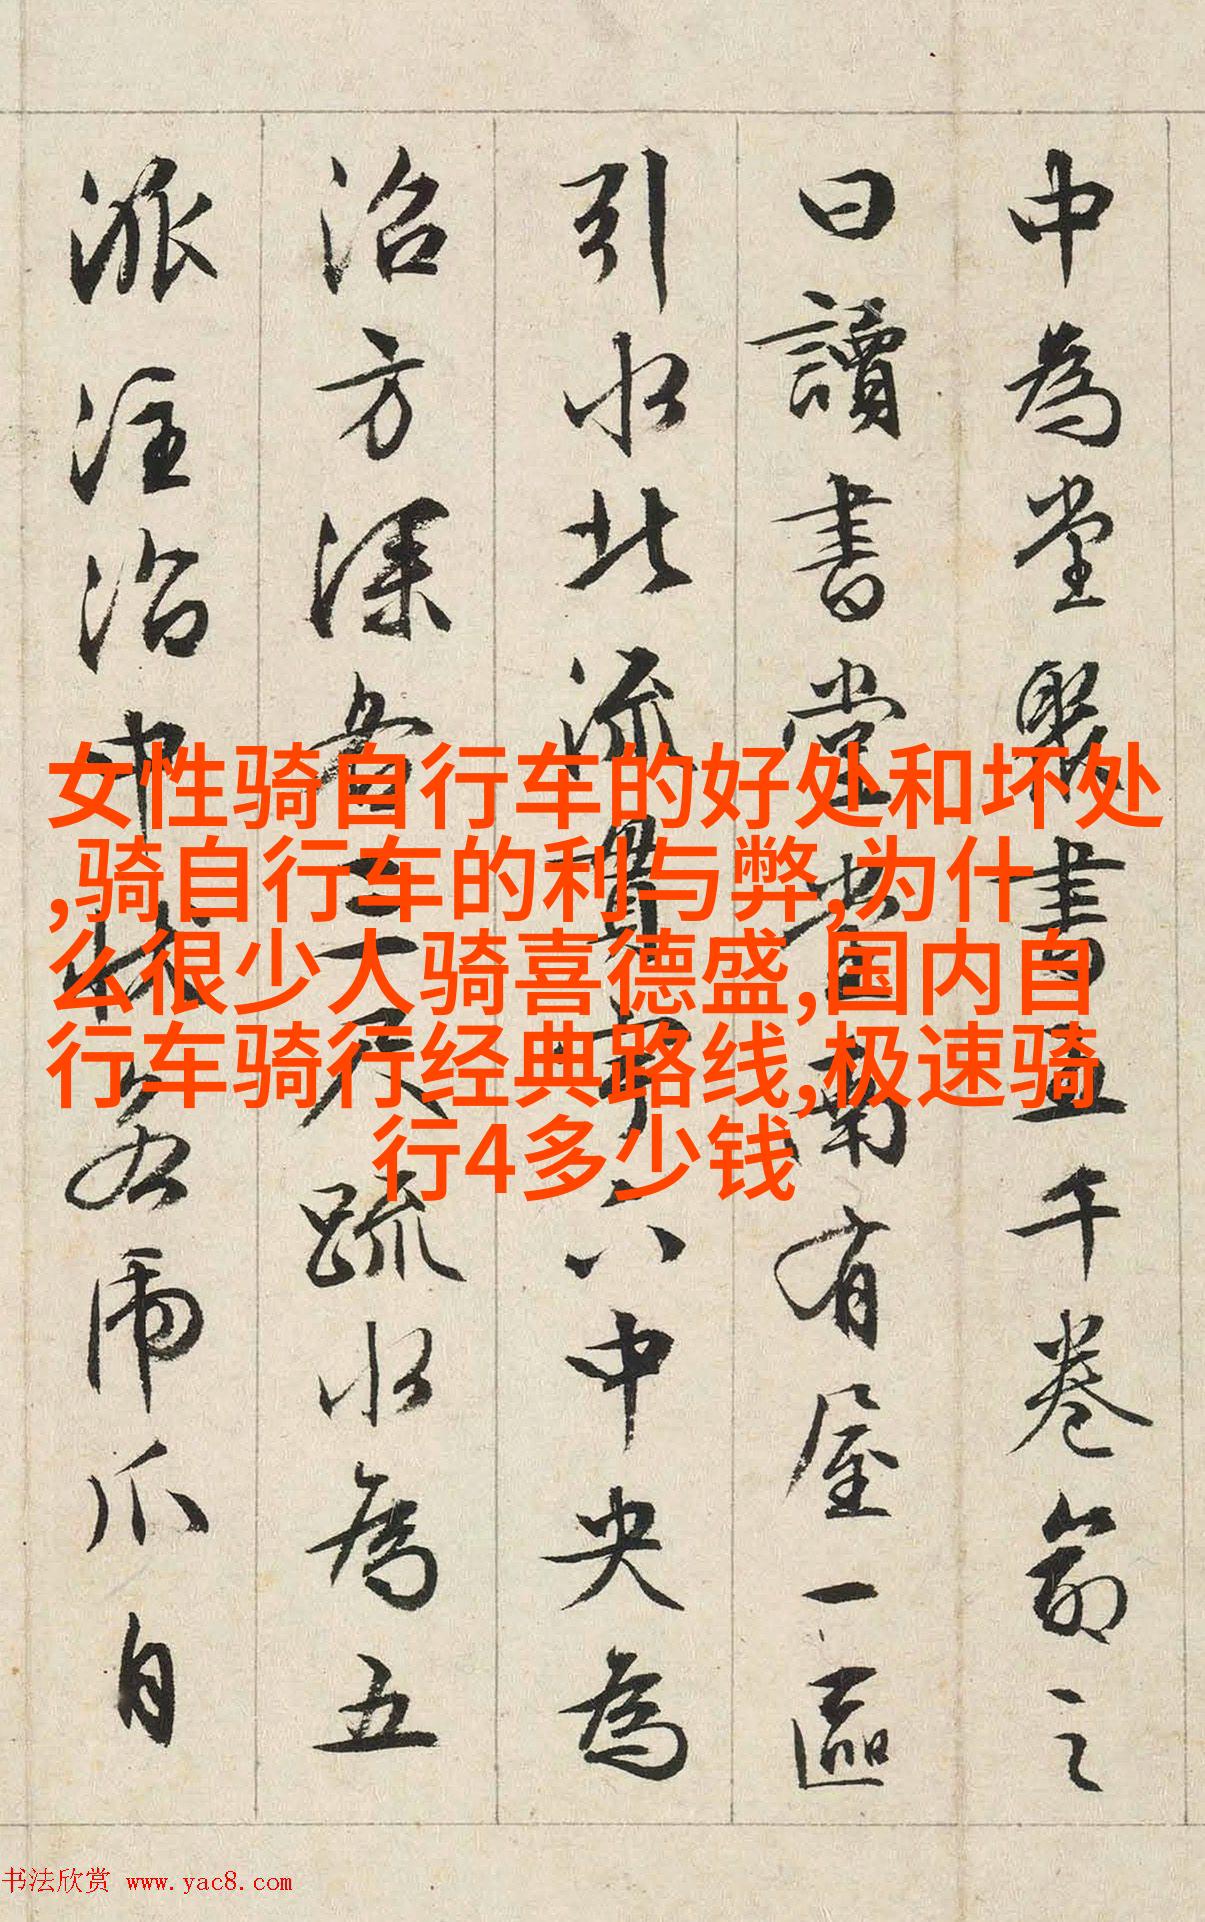 中為堂聚書五千卷命之
曰讀書堂堂南有屋一區
引水北流貫宇下中央為
沼方深各三尺疏水為五
派注沼中狀若虎爪自
女性骑自行车的好处和坏处
,骑自行车的利与弊,为什
么很少人骑喜德盛,国内自
行车骑行经典路线,极速骑
行4多少钱
书法欣赏 www.yac8.com